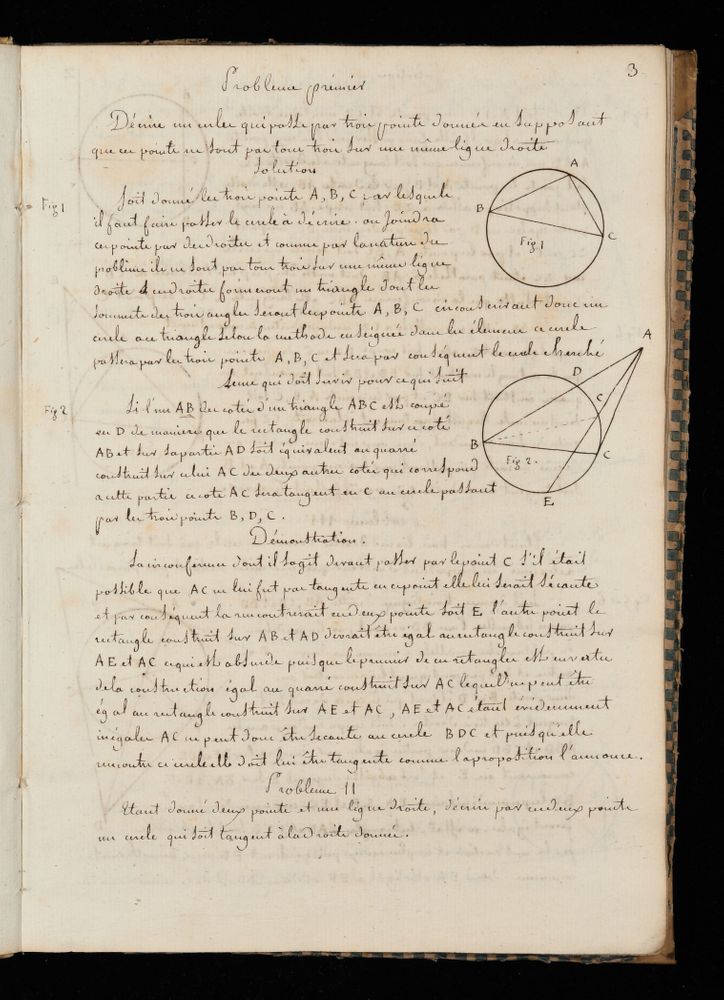 3
Probleme prémier
Décrire un cercle qui passe par trois points donnés en supposant
que ces points ne sont pas tous trois sur une même ligne droite
Solution
Fig 1
Soit donné les trois points A, B, C par lesquels
il faut faire passer le cercle à décrire. on joindra
ces points par des droites et comme par la nature du
problême ils ne sont pas tous trois sur une même ligne
droite ces droites formeront un triangle dont les
sommets des trois angles seront les points A, B, C circonscrivant donc un
cercle a ce triangle selon la methode enseignée dans les élémens ce cercle
passera par les trois points A, B, C et sera par conséquent le cercle cherché
A
B
C
Fig. 1
Leme qui doit servir pour ce qui suit
Fig 2
Si l'un AB des cotés d'un triangle ABC est coupé
en D de maniere que le rectangle construit sur ce coté
AB et sur sa partie AD soit équivalent au quarré
construit sur celui AC des deux autres cotés qui correspond
a cette partie ce coté AC sera tangent en C au cercle passant
par les trois points B, D, C.
A
D
C
B
C
Fig 2.
E
Démonstration.
La circonference dont il s'agit devant passer par le point C s'il était
possible que AC ne lui fut pas tangente en ce point elle lui serait sécante
et par conséquent la rencontrerait en deux points soit E l'autre point le
rectangle construit sur AB et AD devrait être égal au rectangle construit sur
AE et AC ce qui est absurde puisque le premier de ces rectangles est en vertu
de la construction égal au quarré construit sur AC lequel ne peut être
égal au rectangle construit sur AE et AC, AE et AC étant évidemment
inégales AC ne peut donc être secante au cercle BDC et puisqu'elle
rencontre ce cercle elle doit lui être tangente comme la proposition l'annonce.
Probleme II
Etant donné deux points et une ligne droite, décrire par ces deux points
un cercle qui soit tangent à la droite donnée.